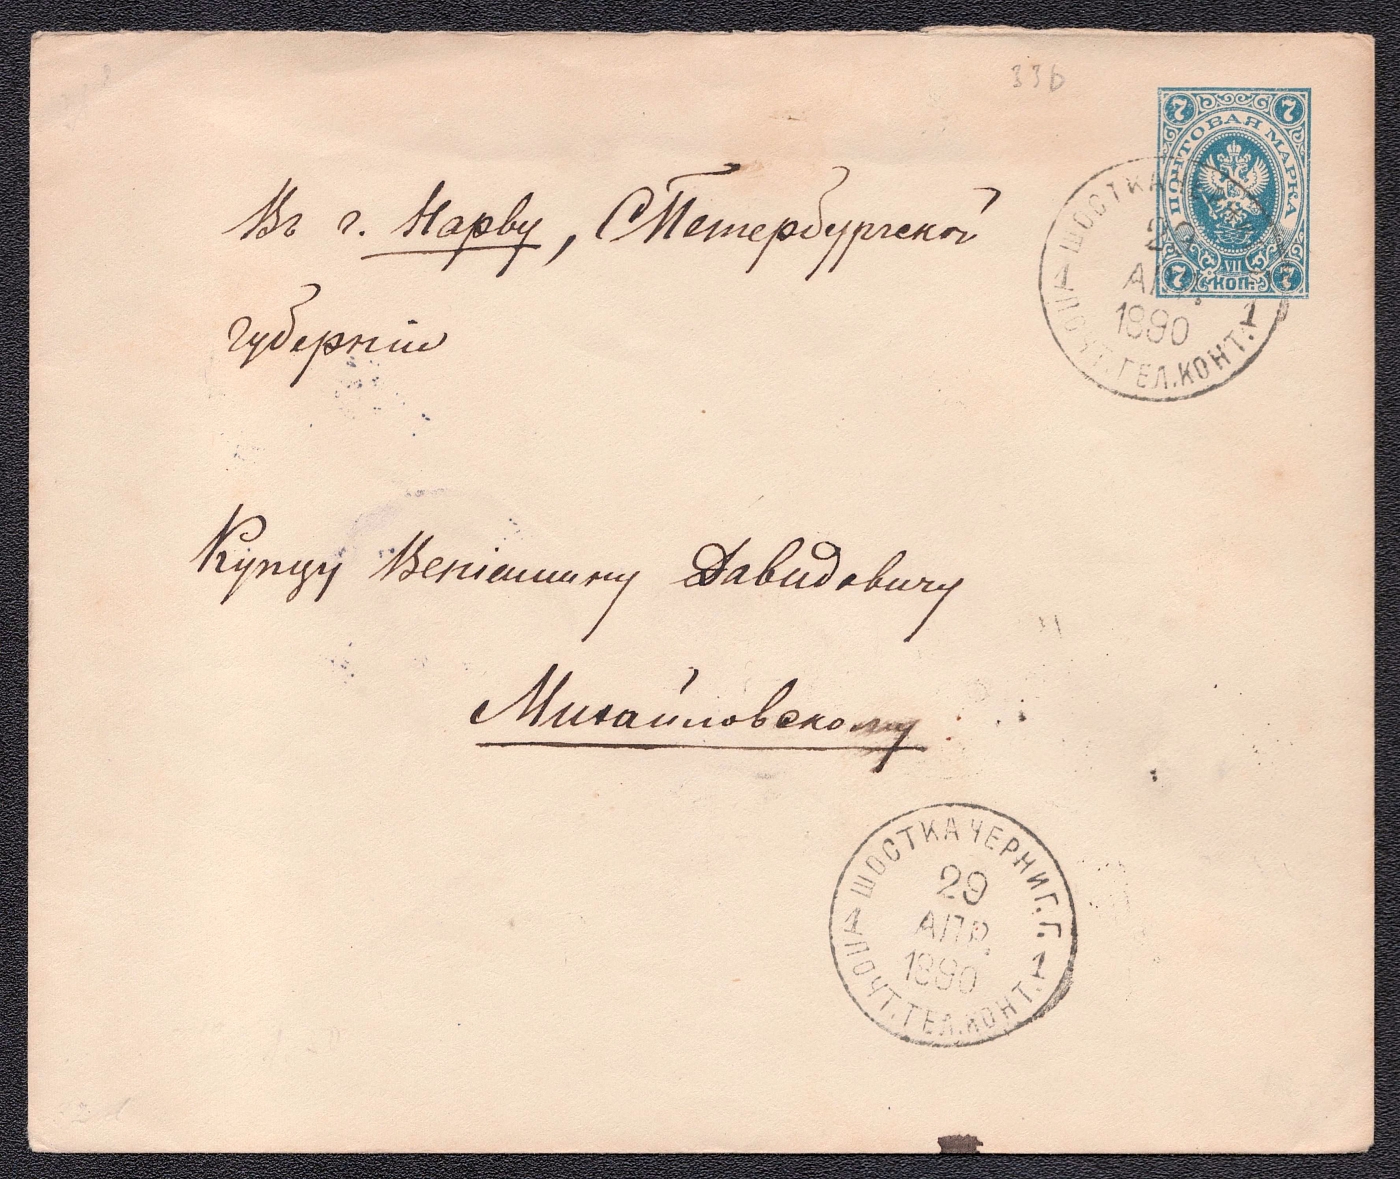 336
7 7
ПОЧТОВАЯ МАРКА
VII
7 КОП. 7
ШОСТКА
29
АПР.
1890
ПОЧТ. ТЕЛ. КОНТ. 1
Въ г. Нарву, СПетербургской
губерніи
Купцу Веніамину Давидовичу
Михайловскому
ШОСТКА ЧЕРНИГ. Г.
29
АПР.
1890
ПОЧТ. ТЕЛ. КОНТ. 1